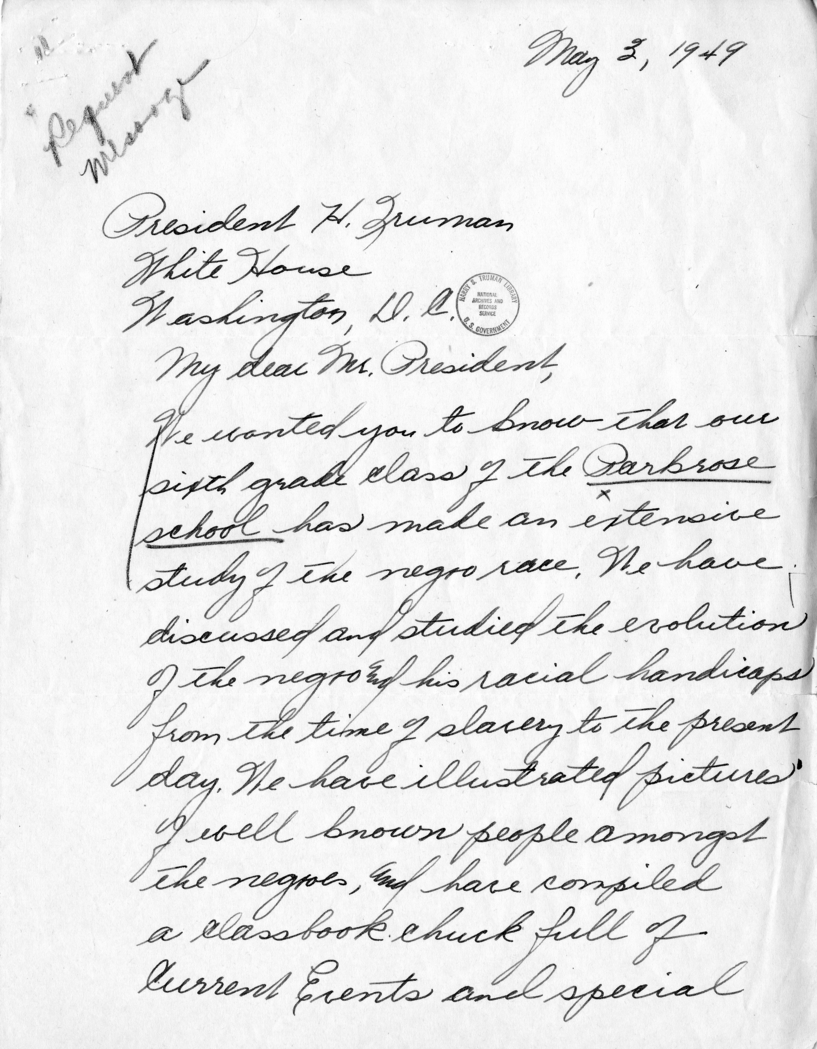 May 3, 1949
Request
Message
President H. Truman
White House
Washington, D. C.
HARRY S. TRUMAN LIBRARY
NATIONAL
ARCHIVES AND
RECORDS
SERVICE
U.S. GOVERNMENT
My dear Mr. President,
We wanted you to know that our
sixth grade class of the Parkrose
school has made an extensive
x
study of the negro race. We have
discussed and studied the evolution
of the negro and his racial handicaps
from the time of slavery to the present
day. We have illustrated pictures
of well known people amongst
the negroes, and have compiled
a classbook chuck full of
Current Events and special